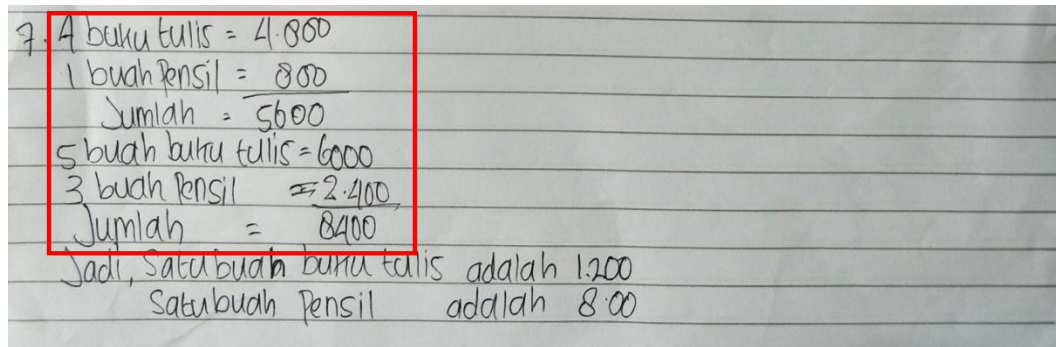 7. 4 buku tulis = 4.800
1 buah Pensil = 800
Jumlah = 5600
5 buah buku tulis = 6000
3 buah Pensil = 2.400
Jumlah = 8400
Jadi, Satu buah buku tulis adalah 1.200
Satu buah Pensil adalah 8.00